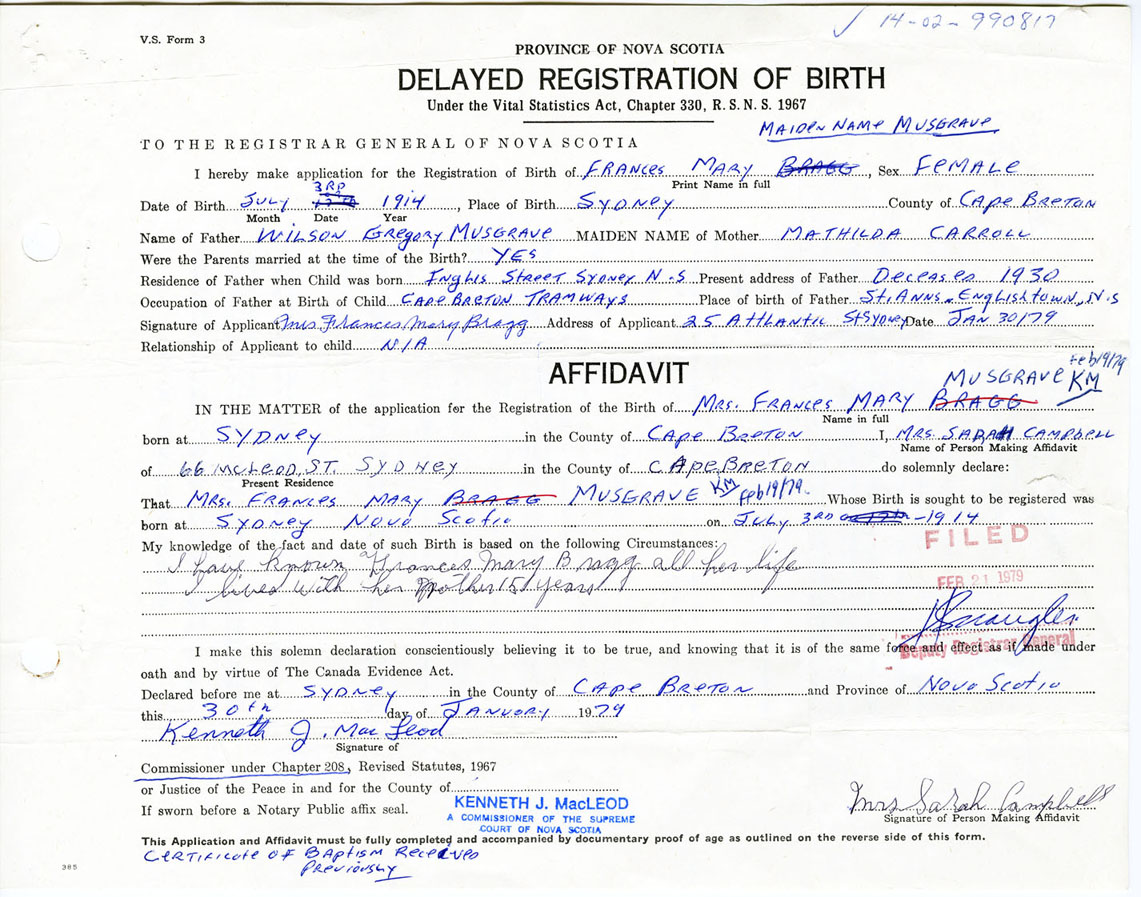 14-02-990817
V.S. Form 3
PROVINCE OF NOVA SCOTIA
DELAYED REGISTRATION OF BIRTH
Under the Vital Statistics Act, Chapter 330, R. S. N. S. 1967
MAIDEN NAME MUSGRAVE
TO THE REGISTRAR GENERAL OF NOVA SCOTIA
I hereby make application for the Registration of Birth of FRANCES MARY BRAGG, Sex FEMALE
Print Name in full
3RD
Date of Birth JULY 1914, Place of Birth SYDNEY County of CAPE BRETON
Month Date Year
Name of Father WILSON GREGORY MUSGRAVE MAIDEN NAME of Mother MATHILDA CARROLL
Were the Parents married at the time of the Birth? YES
Residence of Father when Child was born INGLIS STREET SYDNEY N.S Present address of Father DECEASED 1930
Occupation of Father at Birth of Child CAPE BRETON TRAMWAYS Place of birth of Father ST. ANNS - ENGLISHTOWN, N.S
Signature of Applicant Mrs Frances Mary Bragg Address of Applicant 25 ATTLANTIC ST SYDNEY Date JAN 30/79
Relationship of Applicant to child N/A
Feb 19/79
AFFIDAVIT
MUSGRAVE KM
IN THE MATTER of the application for the Registration of the Birth of MRS. FRANCES MARY BRAGG
Name in full
born at SYDNEY in the County of CAPE BRETON I, MRS. SARAH CAMPBELL
Name of Person Making Affidavit
of 66 McLEOD, ST. SYDNEY in the County of CAPE BRETON do solemnly declare:
Present Residence
That MRS. FRANCES MARY BRAGG MUSGRAVE KM Feb 19/79. Whose Birth is sought to be registered was
born at SYDNEY NOVA SCOTIA on JULY 3RD -1914
FILED
My knowledge of the fact and date of such Birth is based on the following Circumstances:
I have known Frances Mary Bragg all her life
I lived with her Mother 15 years
FEB 21 1979
Deputy Registrar General
I make this solemn declaration conscientiously believing it to be true, and knowing that it is of the same force and effect as if made under
oath and by virtue of The Canada Evidence Act.
Declared before me at SYDNEY in the County of CAPE BRETON and Province of NOVA SCOTIA
this 30th day of JANUARY 1979
Kenneth J. MacLeod
Signature of
Commissioner under Chapter 208, Revised Statutes, 1967
or Justice of the Peace in and for the County of
If sworn before a Notary Public affix seal.
KENNETH J. MacLEOD
A COMMISSIONER OF THE SUPREME
COURT OF NOVA SCOTIA
Mrs Sarah Campbell
Signature of Person Making Affidavit
This Application and Affidavit must be fully completed and accompanied by documentary proof of age as outlined on the reverse side of this form.
CERTIFICATE OF BAPTISM RECEIVED
PREVIOUSLY
385